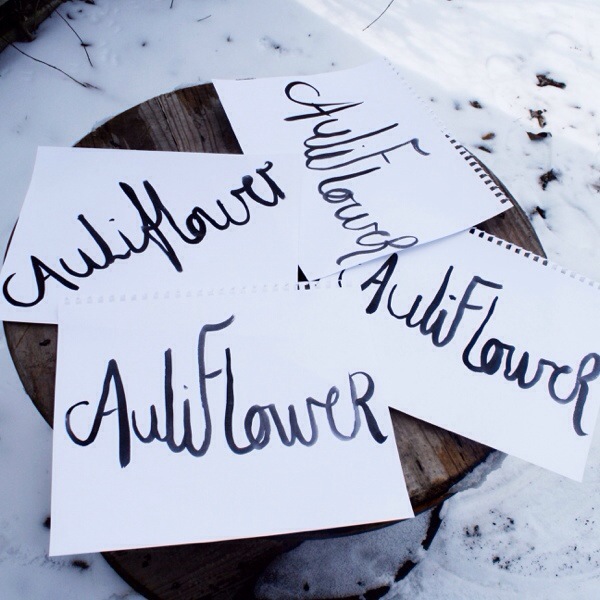 AuliFlower
Auliflower
AuliFloweR
AuliFloweR